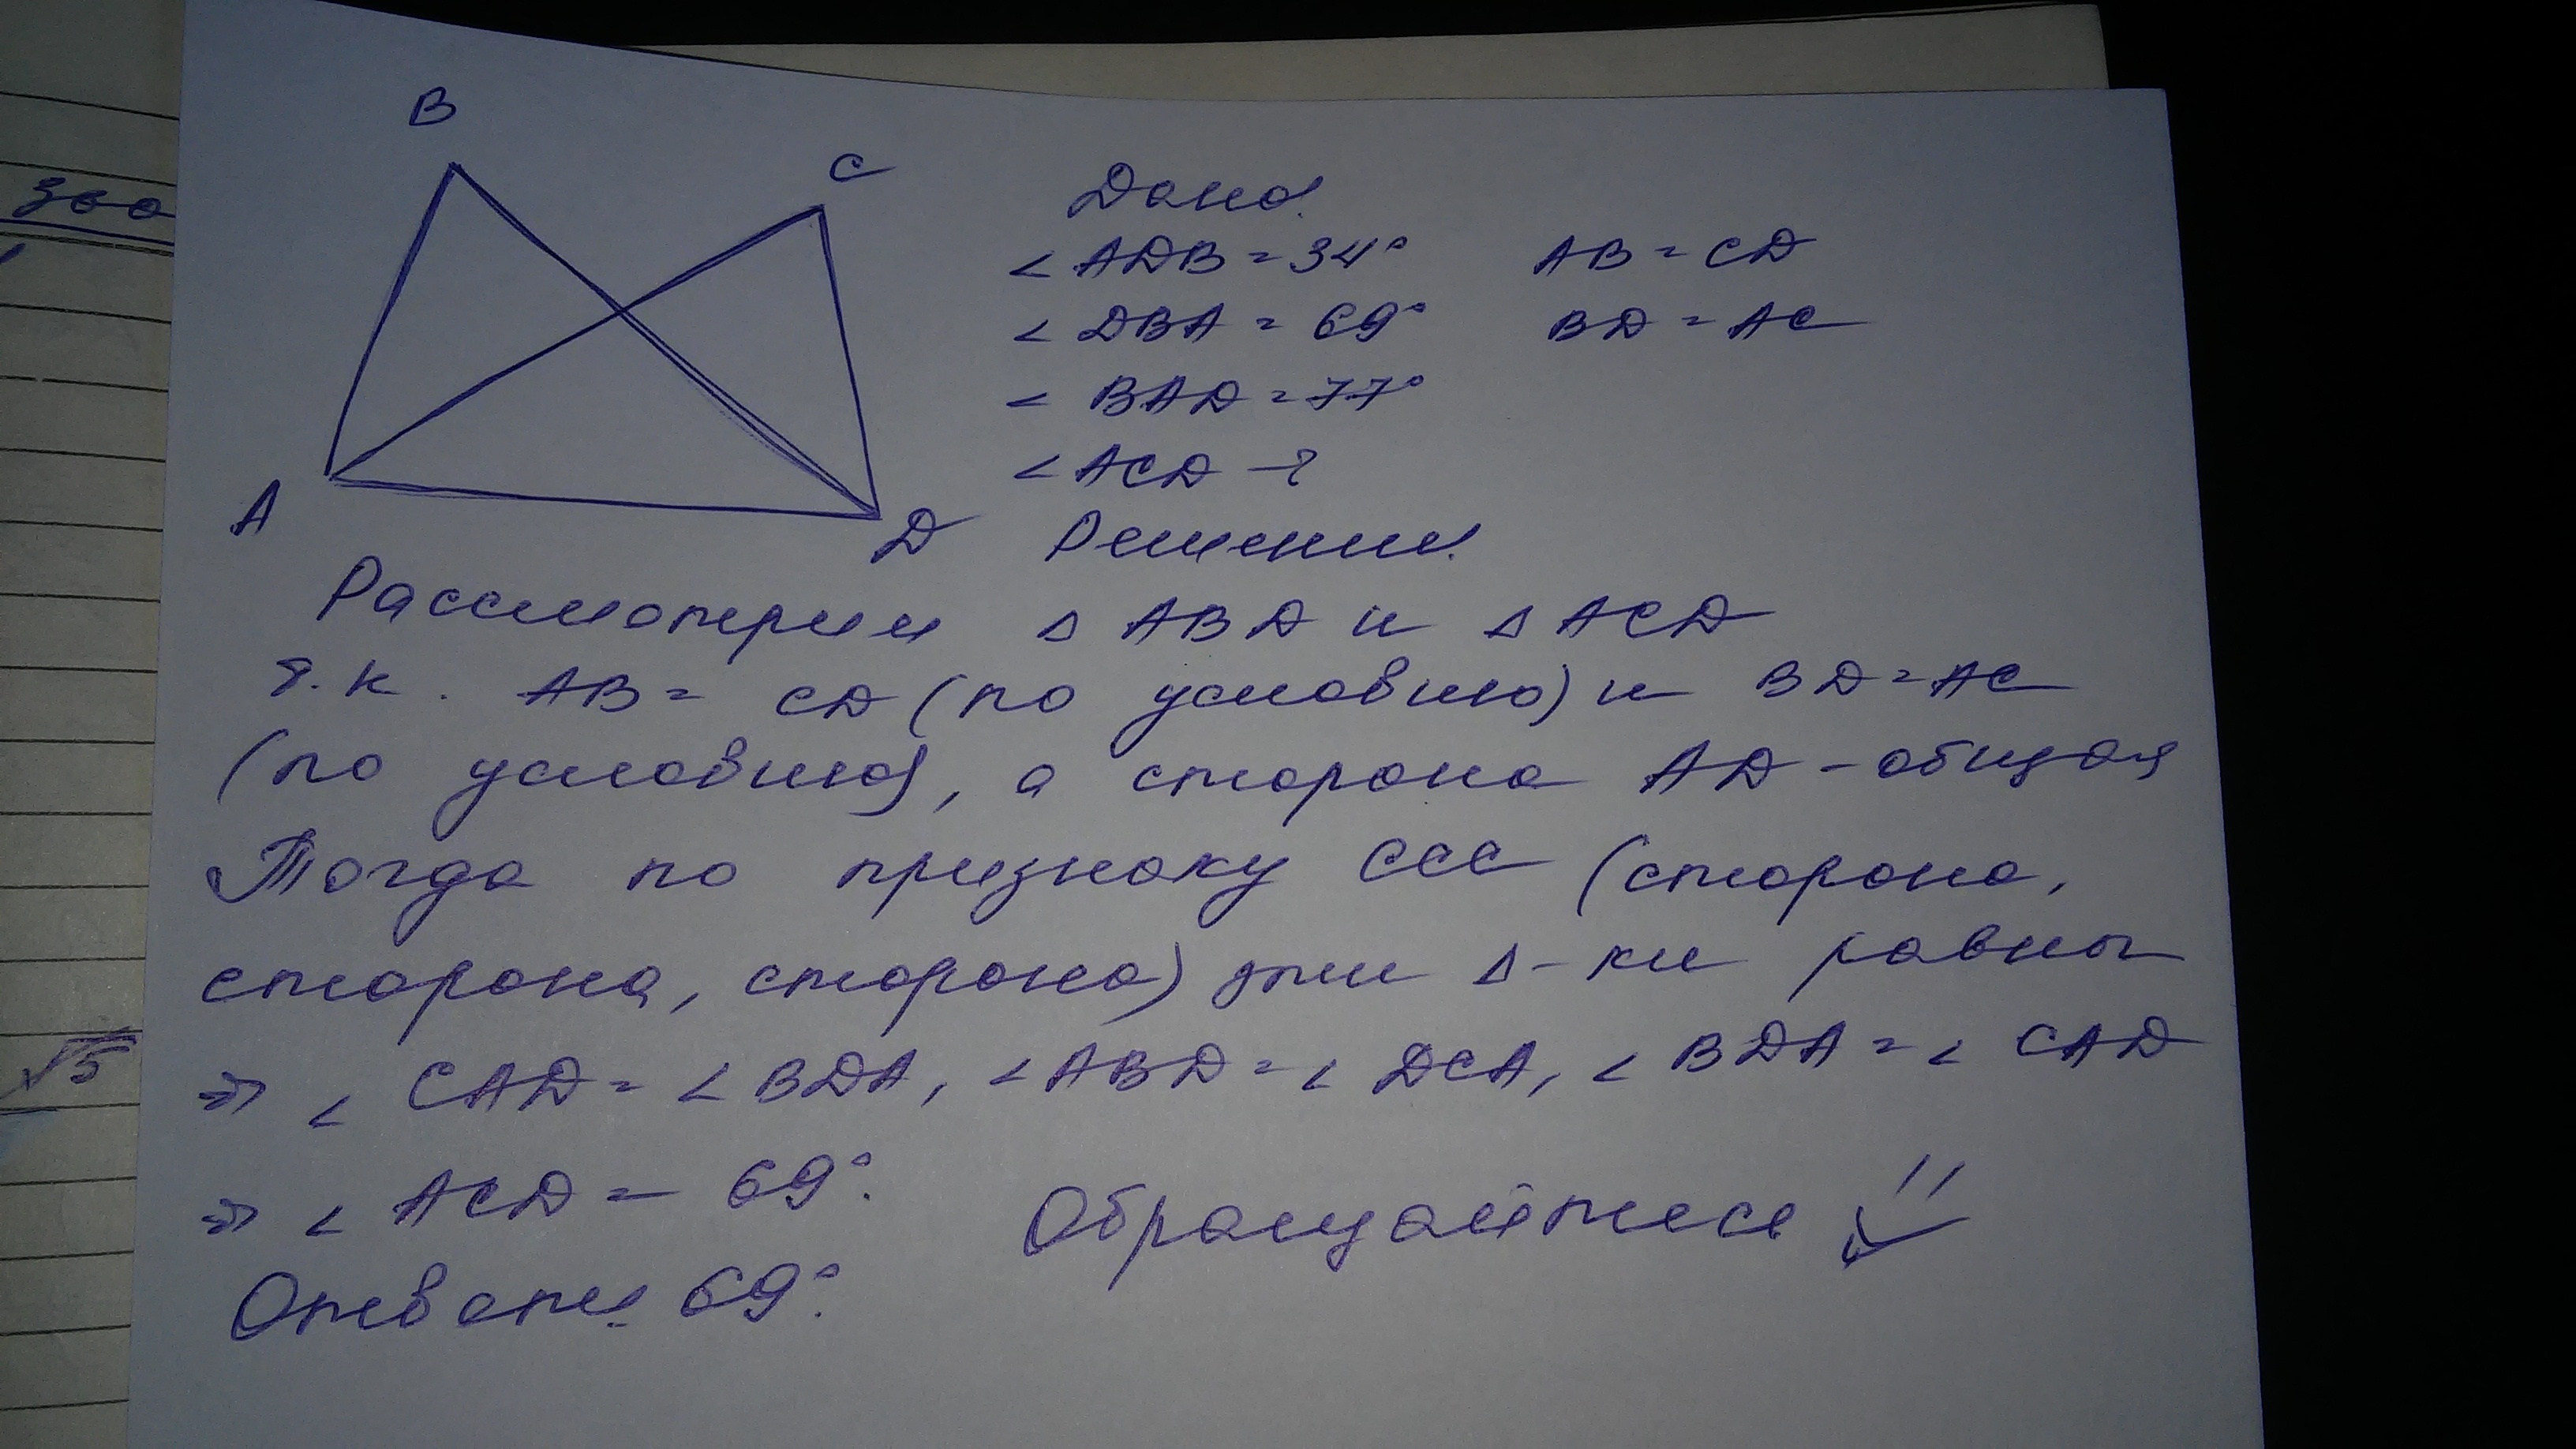 зоо
B
C
Дано.
∠ADB = 34° AB = CD
∠DBA = 69° BD = AC
∠BAD = 77°
∠ACD - ?
A
D
Решение.
Рассмотрим Δ ABD и Δ ACD
т.к. AB = CD (по условию) и BD = AC
(по условию), а сторона AD - общая
Тогда по признаку ССС (сторона,
сторона, сторона) эти Δ-ки равны
=> ∠CAD = ∠BDA, ∠ABD = ∠DCA, ∠BDA = ∠CAD
=> ∠ACD = 69°.
Обращайтесь
Ответ: 69°.
√5